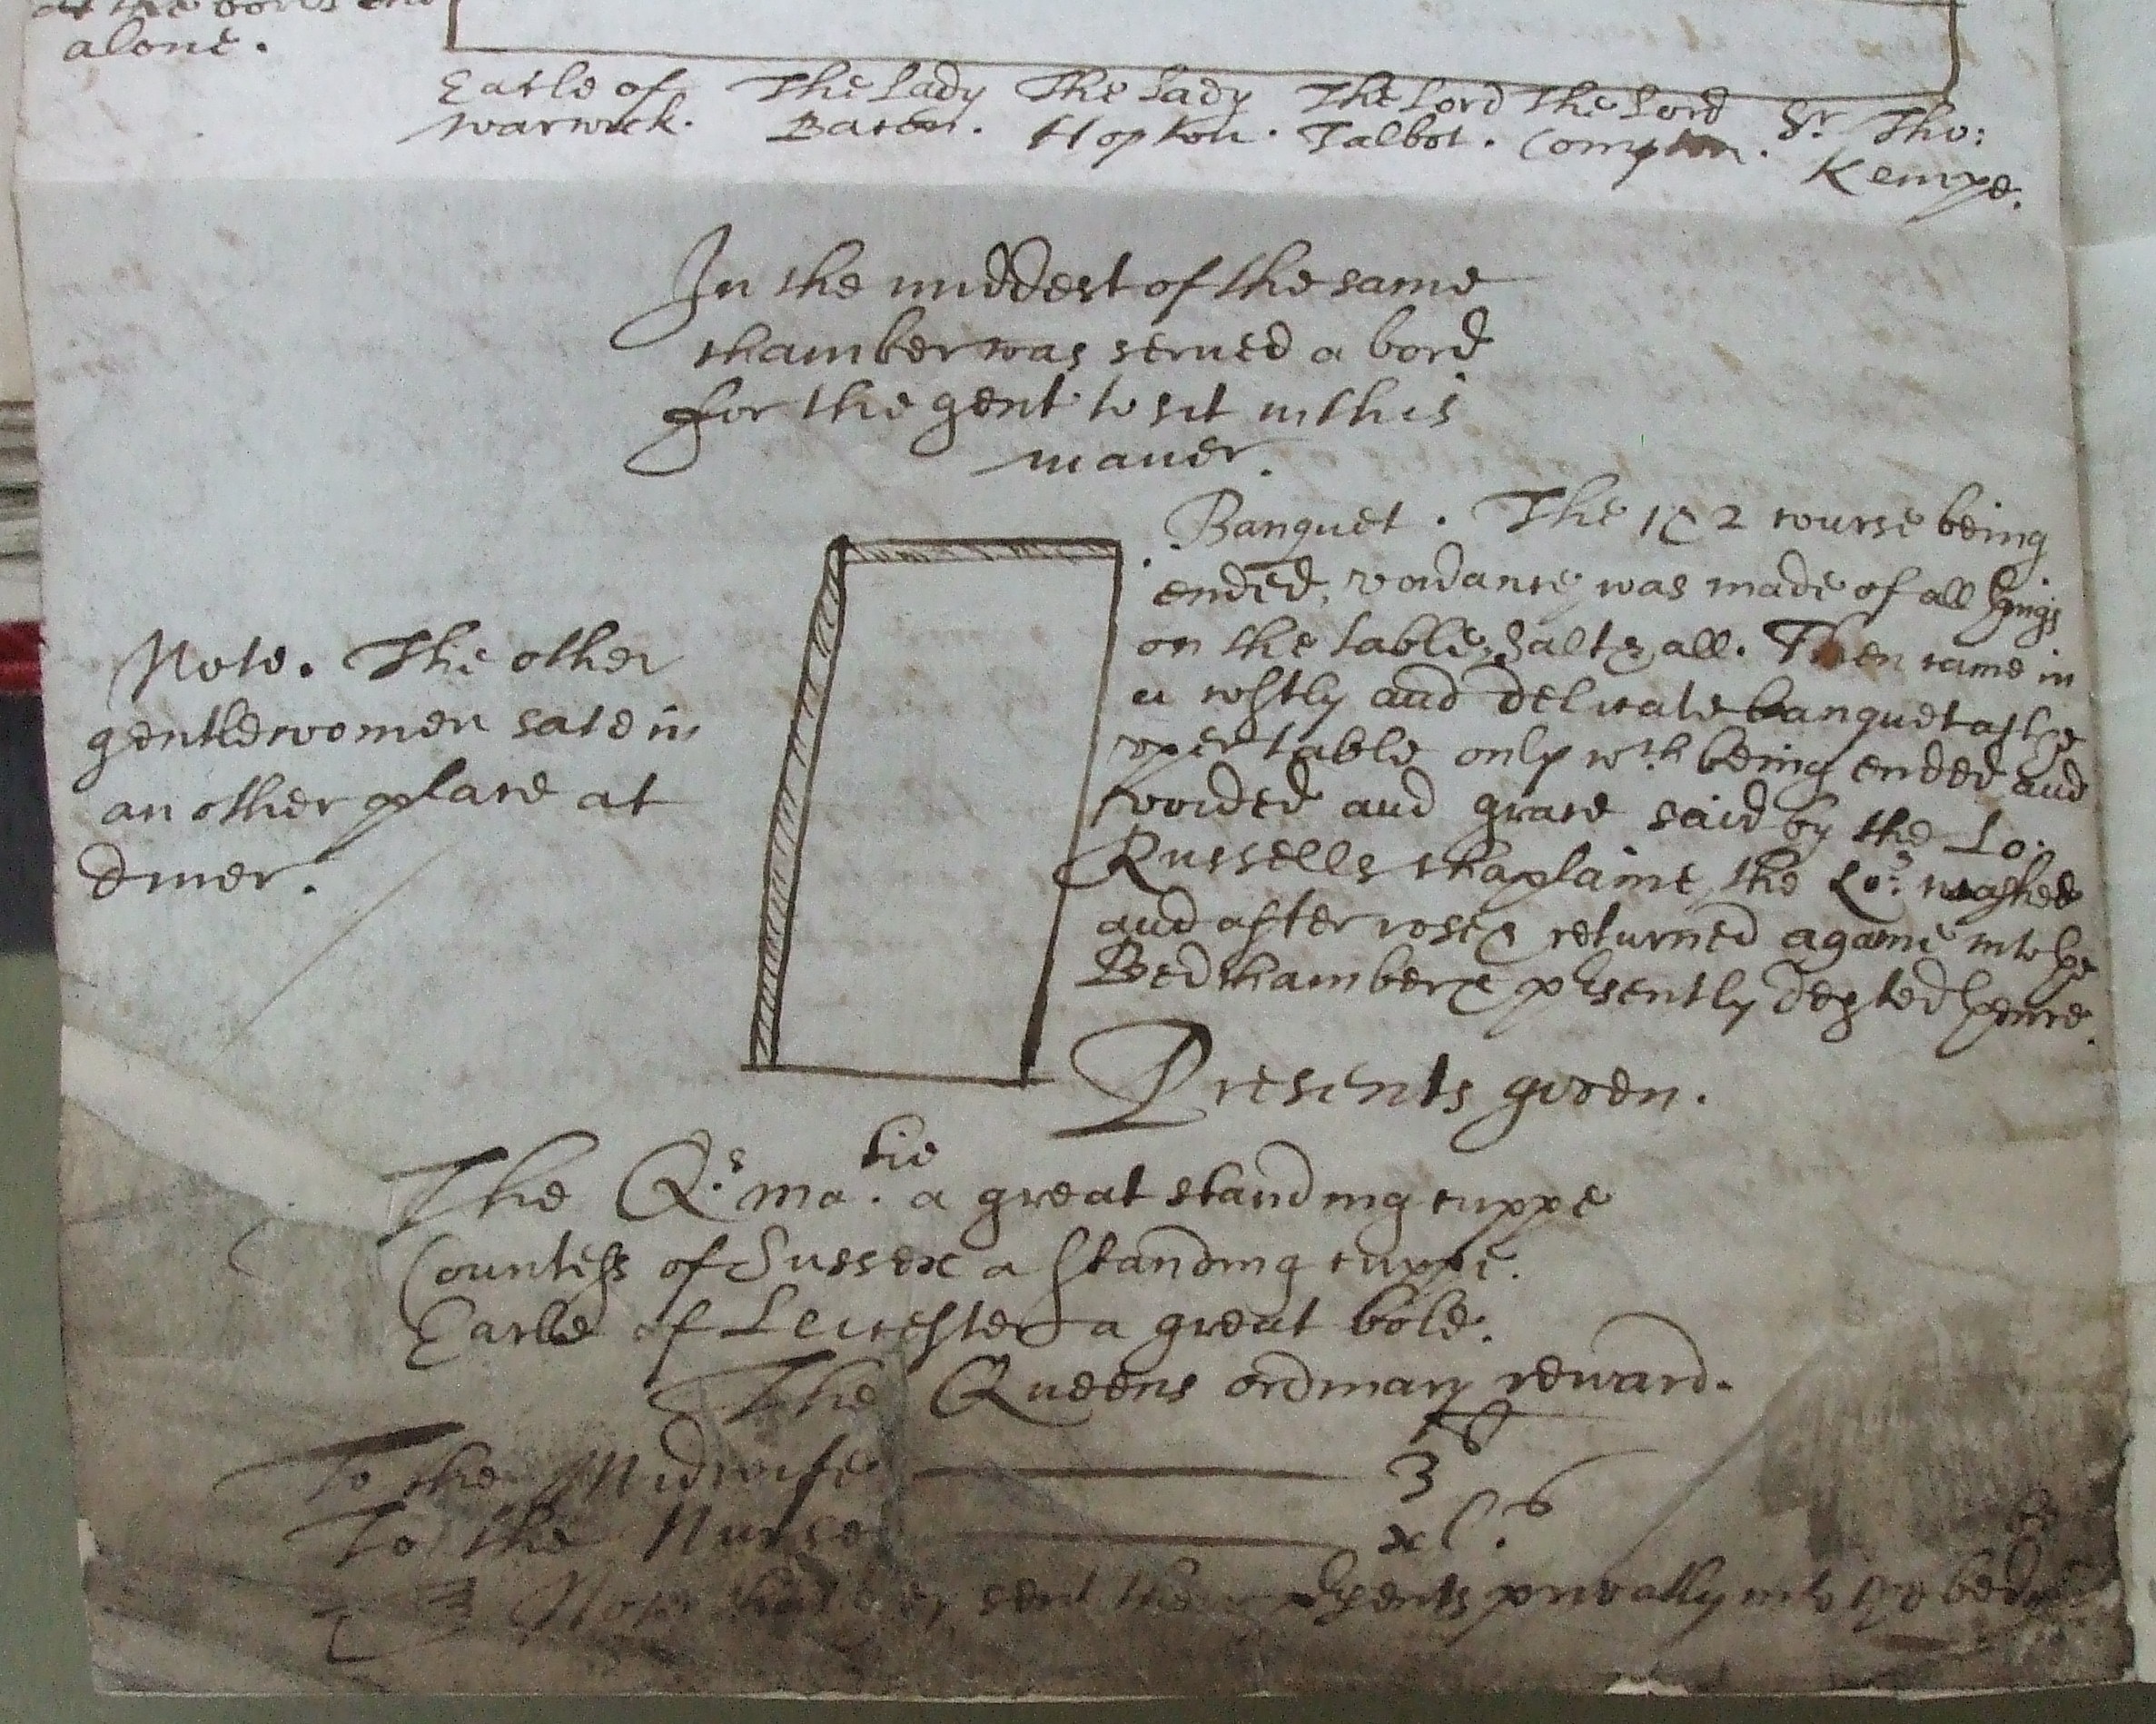 alone.
Earle of The Lady The Lady The Lord The Lord Sr Tho:
warwick. Bacon. Hopton. Talbot. Compton. Kempe.
In the middest of the same
chamber was serued a bord
for the gent to sit in this
maner.
Note. The other
gentlewomen sate in
an other place at
diner.
Banquet. The 1 & 2 course being
ended, voidance was made of all things
on the table, salt & all. Then came in
a costly and delicate banquet at the
vper table only wch being ended and
voided and grace said by the Lo.
Russells chaplaine, the Los washed
and after rose & returned againe into the
Bedchamber & presently depted hence.
Presents given.
The Q.s ma.tie a great standing cuppe
Countess of Sussex a standing cuppe.
Earle of Leicester a great bole.
The Queens ordinary reward.
To the Midwife 3
To the Nurse xl.s
Note sent privatly into